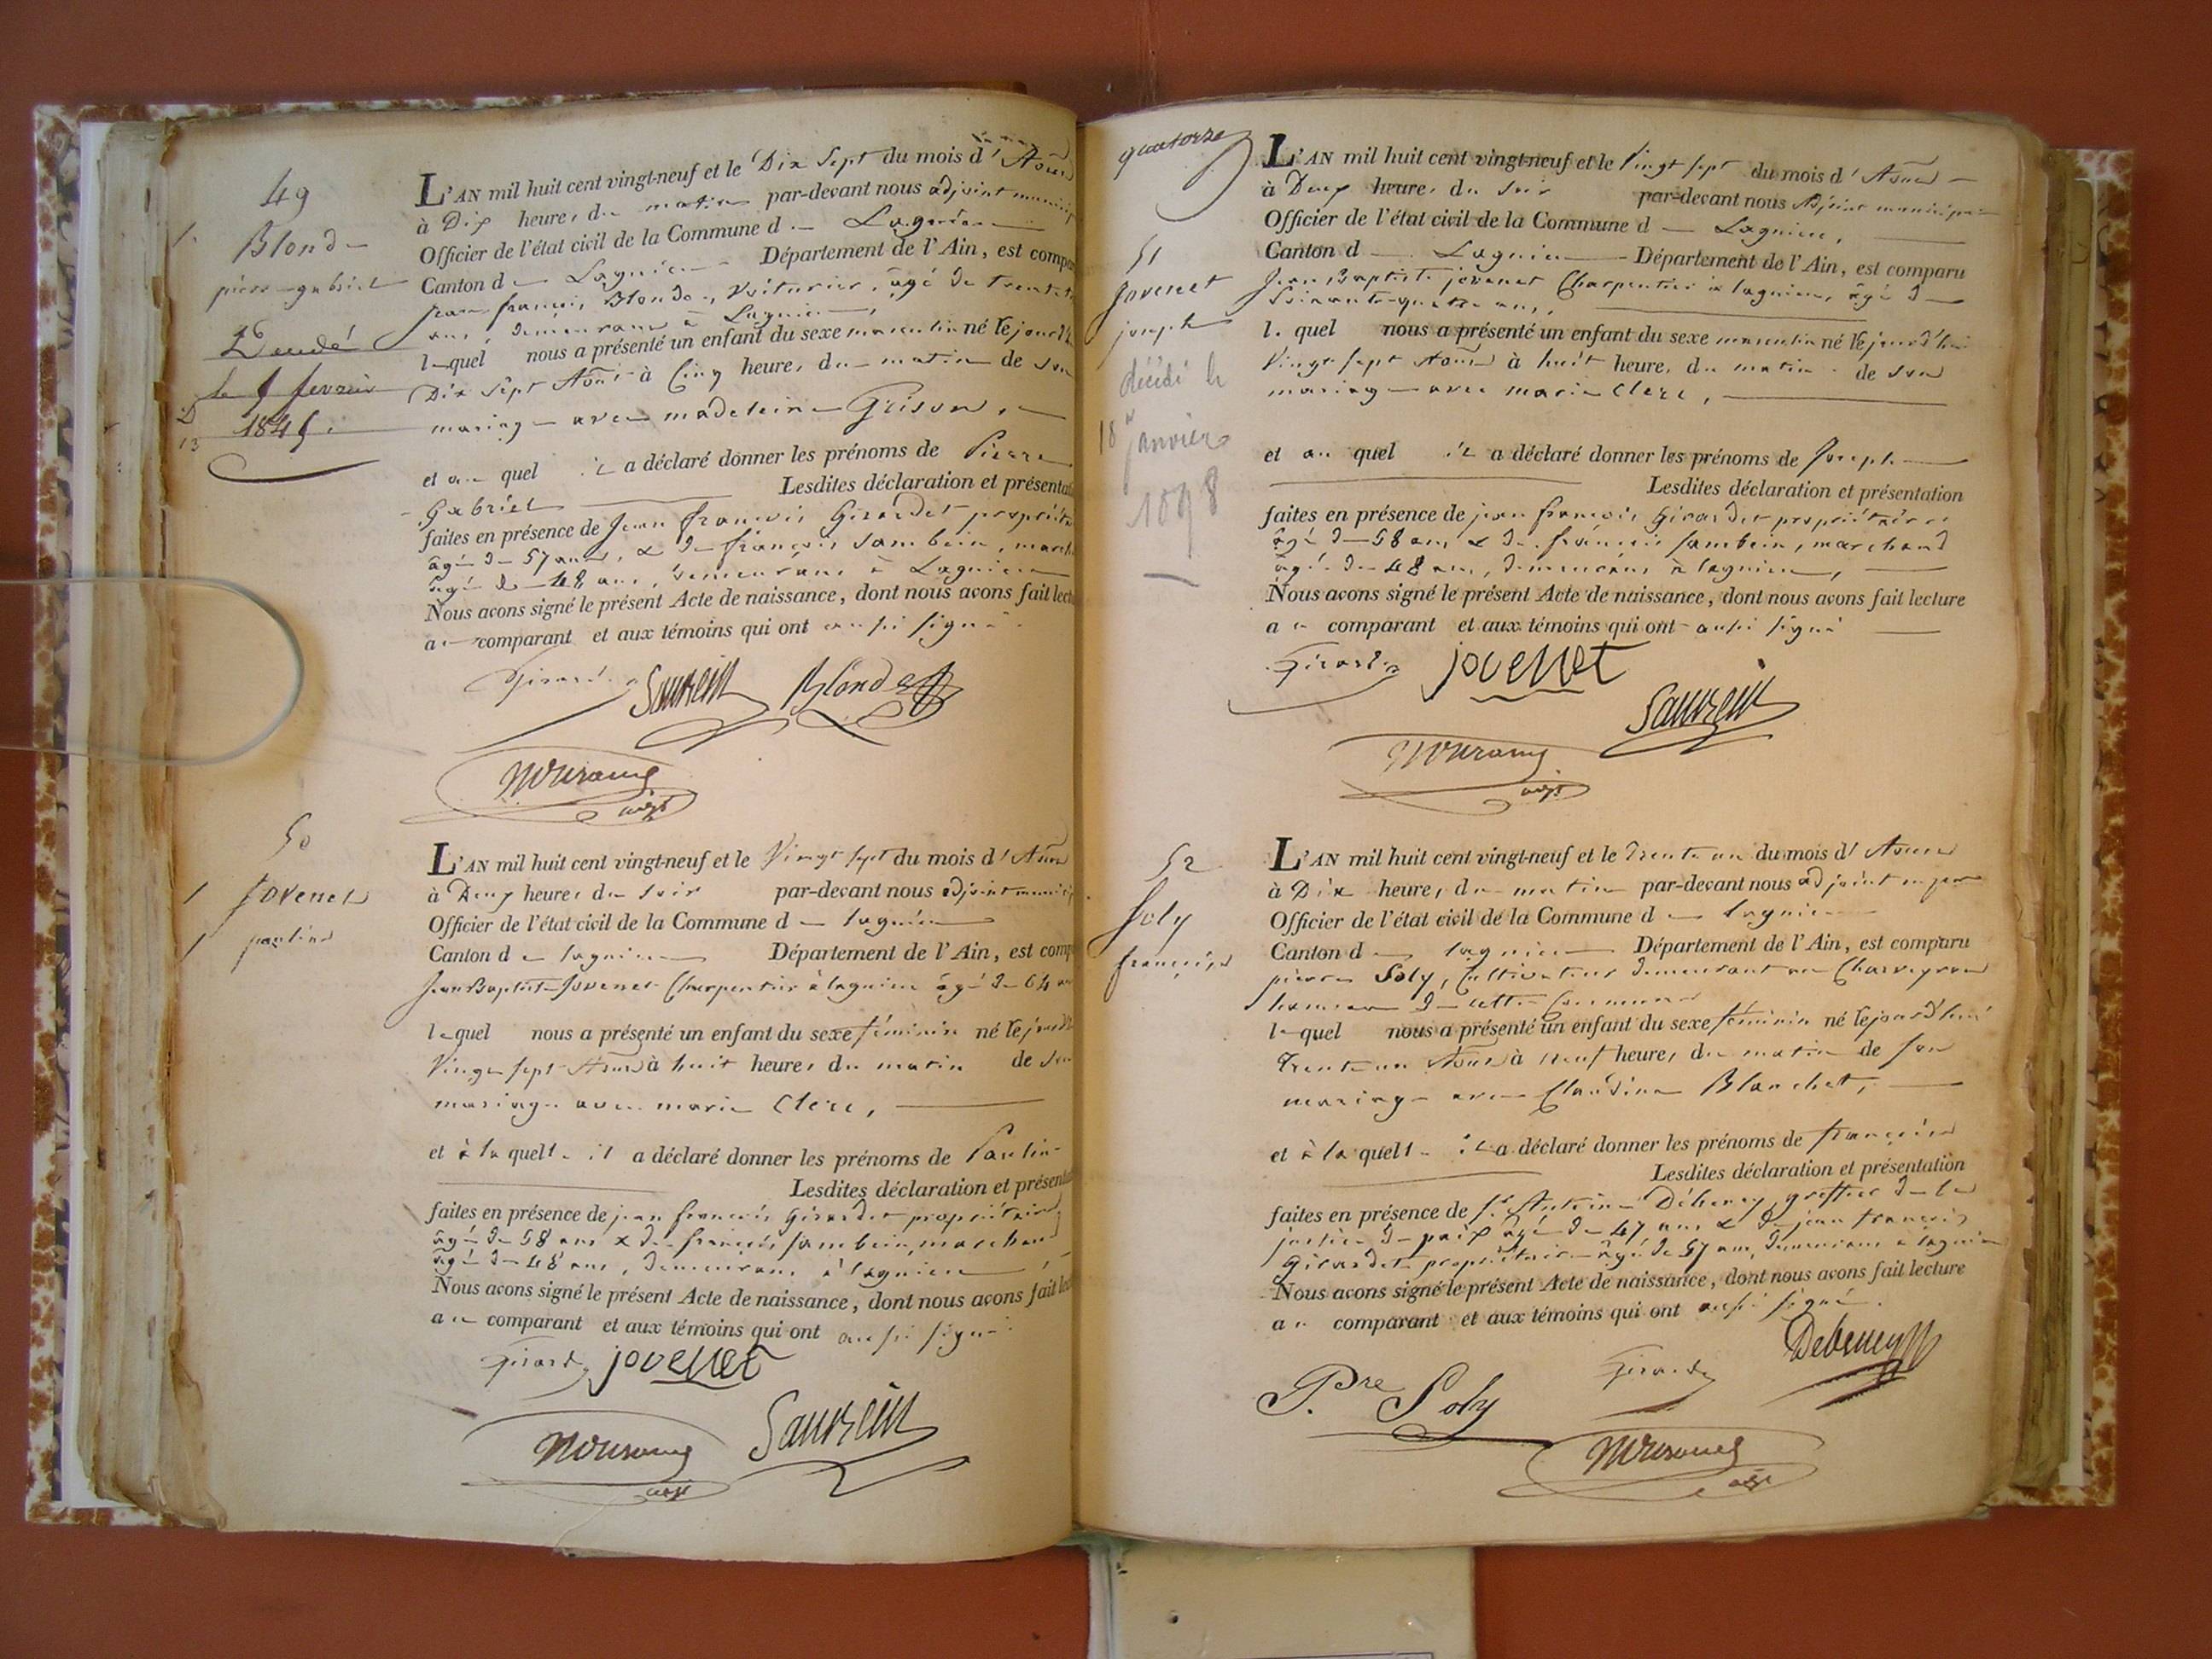 49
Blond
pierre gabriel
Décédé
le 5 fevrier
1845.
D
13
L'AN mil huit cent vingt-neuf et le Dix Sept du mois d'Aout
à Dix heures du matin par-devant nous adjoint municip
Officier de l'état civil de la Commune d Lagnieu
Canton d Lagnieu Département de l'Ain, est compa
jean françois Blonde, Voiturier, âgé de trente
ans, demeurant à Lagnieu,
lequel nous a présenté un enfant du sexe masculin né le jourd'h
Dix Sept Aout à Cinq heures du matin de son
mariage avec madeleine Grison,
et au quel il a déclaré donner les prénoms de Pierre
Gabriel Lesdites déclaration et présenta
faites en présence de Jean françois Girardet propriétai
âgé de 57 ans, & de françois Sambein, march
âgé de 48 ans, demeurans à Lagnieu
Nous avons signé le présent Acte de naissance, dont nous avons fait lectu
au comparant et aux témoins qui ont aussi signé.
Girard Blonde
adjt
50
Jovenet
pauline
L'AN mil huit cent vingt-neuf et le Vingt sept du mois d'Aout
à Deux heures du soir par-devant nous adjoint municip
Officier de l'état civil de la Commune d lagnieu
Canton d lagnieu Département de l'Ain, est comp
Jean Baptiste Jovenet Charpentier à lagnieu âgé de 64 an
lequel nous a présenté un enfant du sexe féminin né le jourd'h
Vingt sept Aout à huit heures du matin de son
mariage avec marie Clerc,
et à la quelle il a déclaré donner les prénoms de Pauline
Lesdites déclaration et présenta
faites en présence de jean françois Girardet propriétaire
âgé de 58 ans & de françois Sambein, marchand
âgé de 48 ans, demeurans à lagnieu
Nous avons signé le présent Acte de naissance, dont nous avons fait lec
au comparant et aux témoins qui ont aussi signé.
Girard jovenet
adjt
quatorze
51
Jovenet
joseph
décédé le
18 janvier
L'AN mil huit cent vingt-neuf et le Vingt sept du mois d'Aout
à Deux heures du soir par-devant nous Adjoint municipal
Officier de l'état civil de la Commune d Lagnieu,
Canton d Lagnieu Département de l'Ain, est comparu
Jean Baptiste jovenet Charpentier à lagnieu, âgé de
Soixante-quatre ans,
lequel nous a présenté un enfant du sexe masculin né le jourd'hui
Vingt sept Aout à huit heures du matin de son
mariage avec marie Clerc,
et au quel il a déclaré donner les prénoms de Joseph
Lesdites déclaration et présentation
faites en présence de jean françois Girardet propriétaire
âgé de 58 ans & de françois Sambein, marchand
âgé de 48 ans, demeurans à lagnieu,
Nous avons signé le présent Acte de naissance, dont nous avons fait lecture
au comparant et aux témoins qui ont aussi signé
Girard jovenet
adjt
52
Soly
françoise
L'AN mil huit cent vingt-neuf et le Trente un du mois d'Aout
à Dix heures du matin par-devant nous adjoint
Officier de l'état civil de la Commune d lagnieu
Canton d lagnieu Département de l'Ain, est comparu
pierre Soly, Cultivateur demeurant au Charveyron
hameau de cette Commune
lequel nous a présenté un enfant du sexe féminin né le jourd'hui
Trente un Aout à neuf heures du matin de son
mariage avec Claudine Blanchet,
et à la quelle il a déclaré donner les prénoms de françoise
Lesdites déclaration et présentation
faites en présence de Sr Antoine Débeney greffier de la
justice de paix âgé de 47 ans & de jean françois
Girardet propriétaire âgé de 57 ans, demeurans à lagnieu
Nous avons signé le présent Acte de naissance, dont nous avons fait lecture
au comparant et aux témoins qui ont aussi signé.
Pre Soly Girard Debeney
adjt